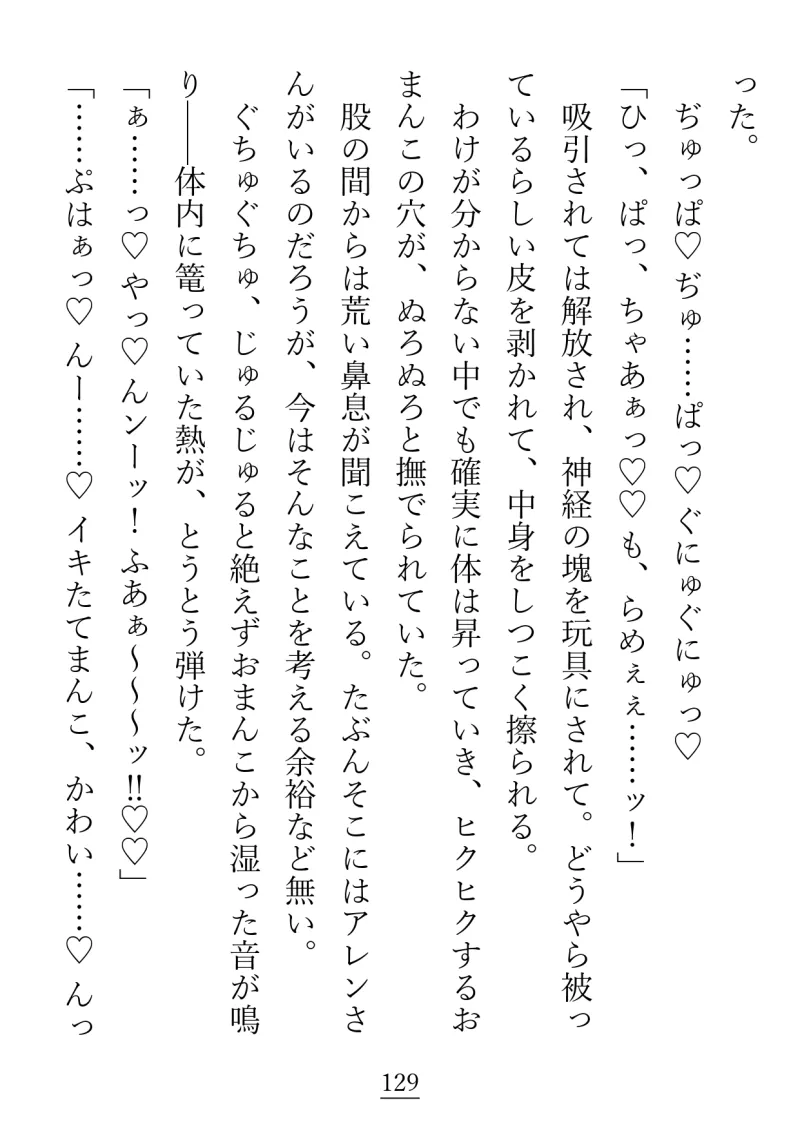 った。
　ぢゅっぱ♡ ぢゅ……ぱっ♡ ぐにゅぐにゅっ♡
「ひっ、ぱっ、ちゃあぁっ♡♡ も、らめぇぇ……ッ！」
　吸引されては解放され、神経の塊を玩具にされて。どうやら被っ
ているらしい皮を剥かれて、中身をしつこく擦られる。
　わけが分からない中でも確実に体は昇っていき、ヒクヒクするお
まんこの穴が、ぬろぬろと撫でられていた。
　股の間からは荒い鼻息が聞こえている。たぶんそこにはアレンさ
んがいるのだろうが、今はそんなことを考える余裕など無い。
　ぐちゅぐちゅ、じゅるじゅると絶えずおまんこから湿った音が鳴
り――体内に篭っていた熱が、とうとう弾けた。
「ぁ……っ♡ やっ♡ んンーッ！ ふあぁ～～～ッ!!♡♡」
「……ぷはぁっ♡ んー……♡ イキたてまんこ、かわい……♡ んっ
129